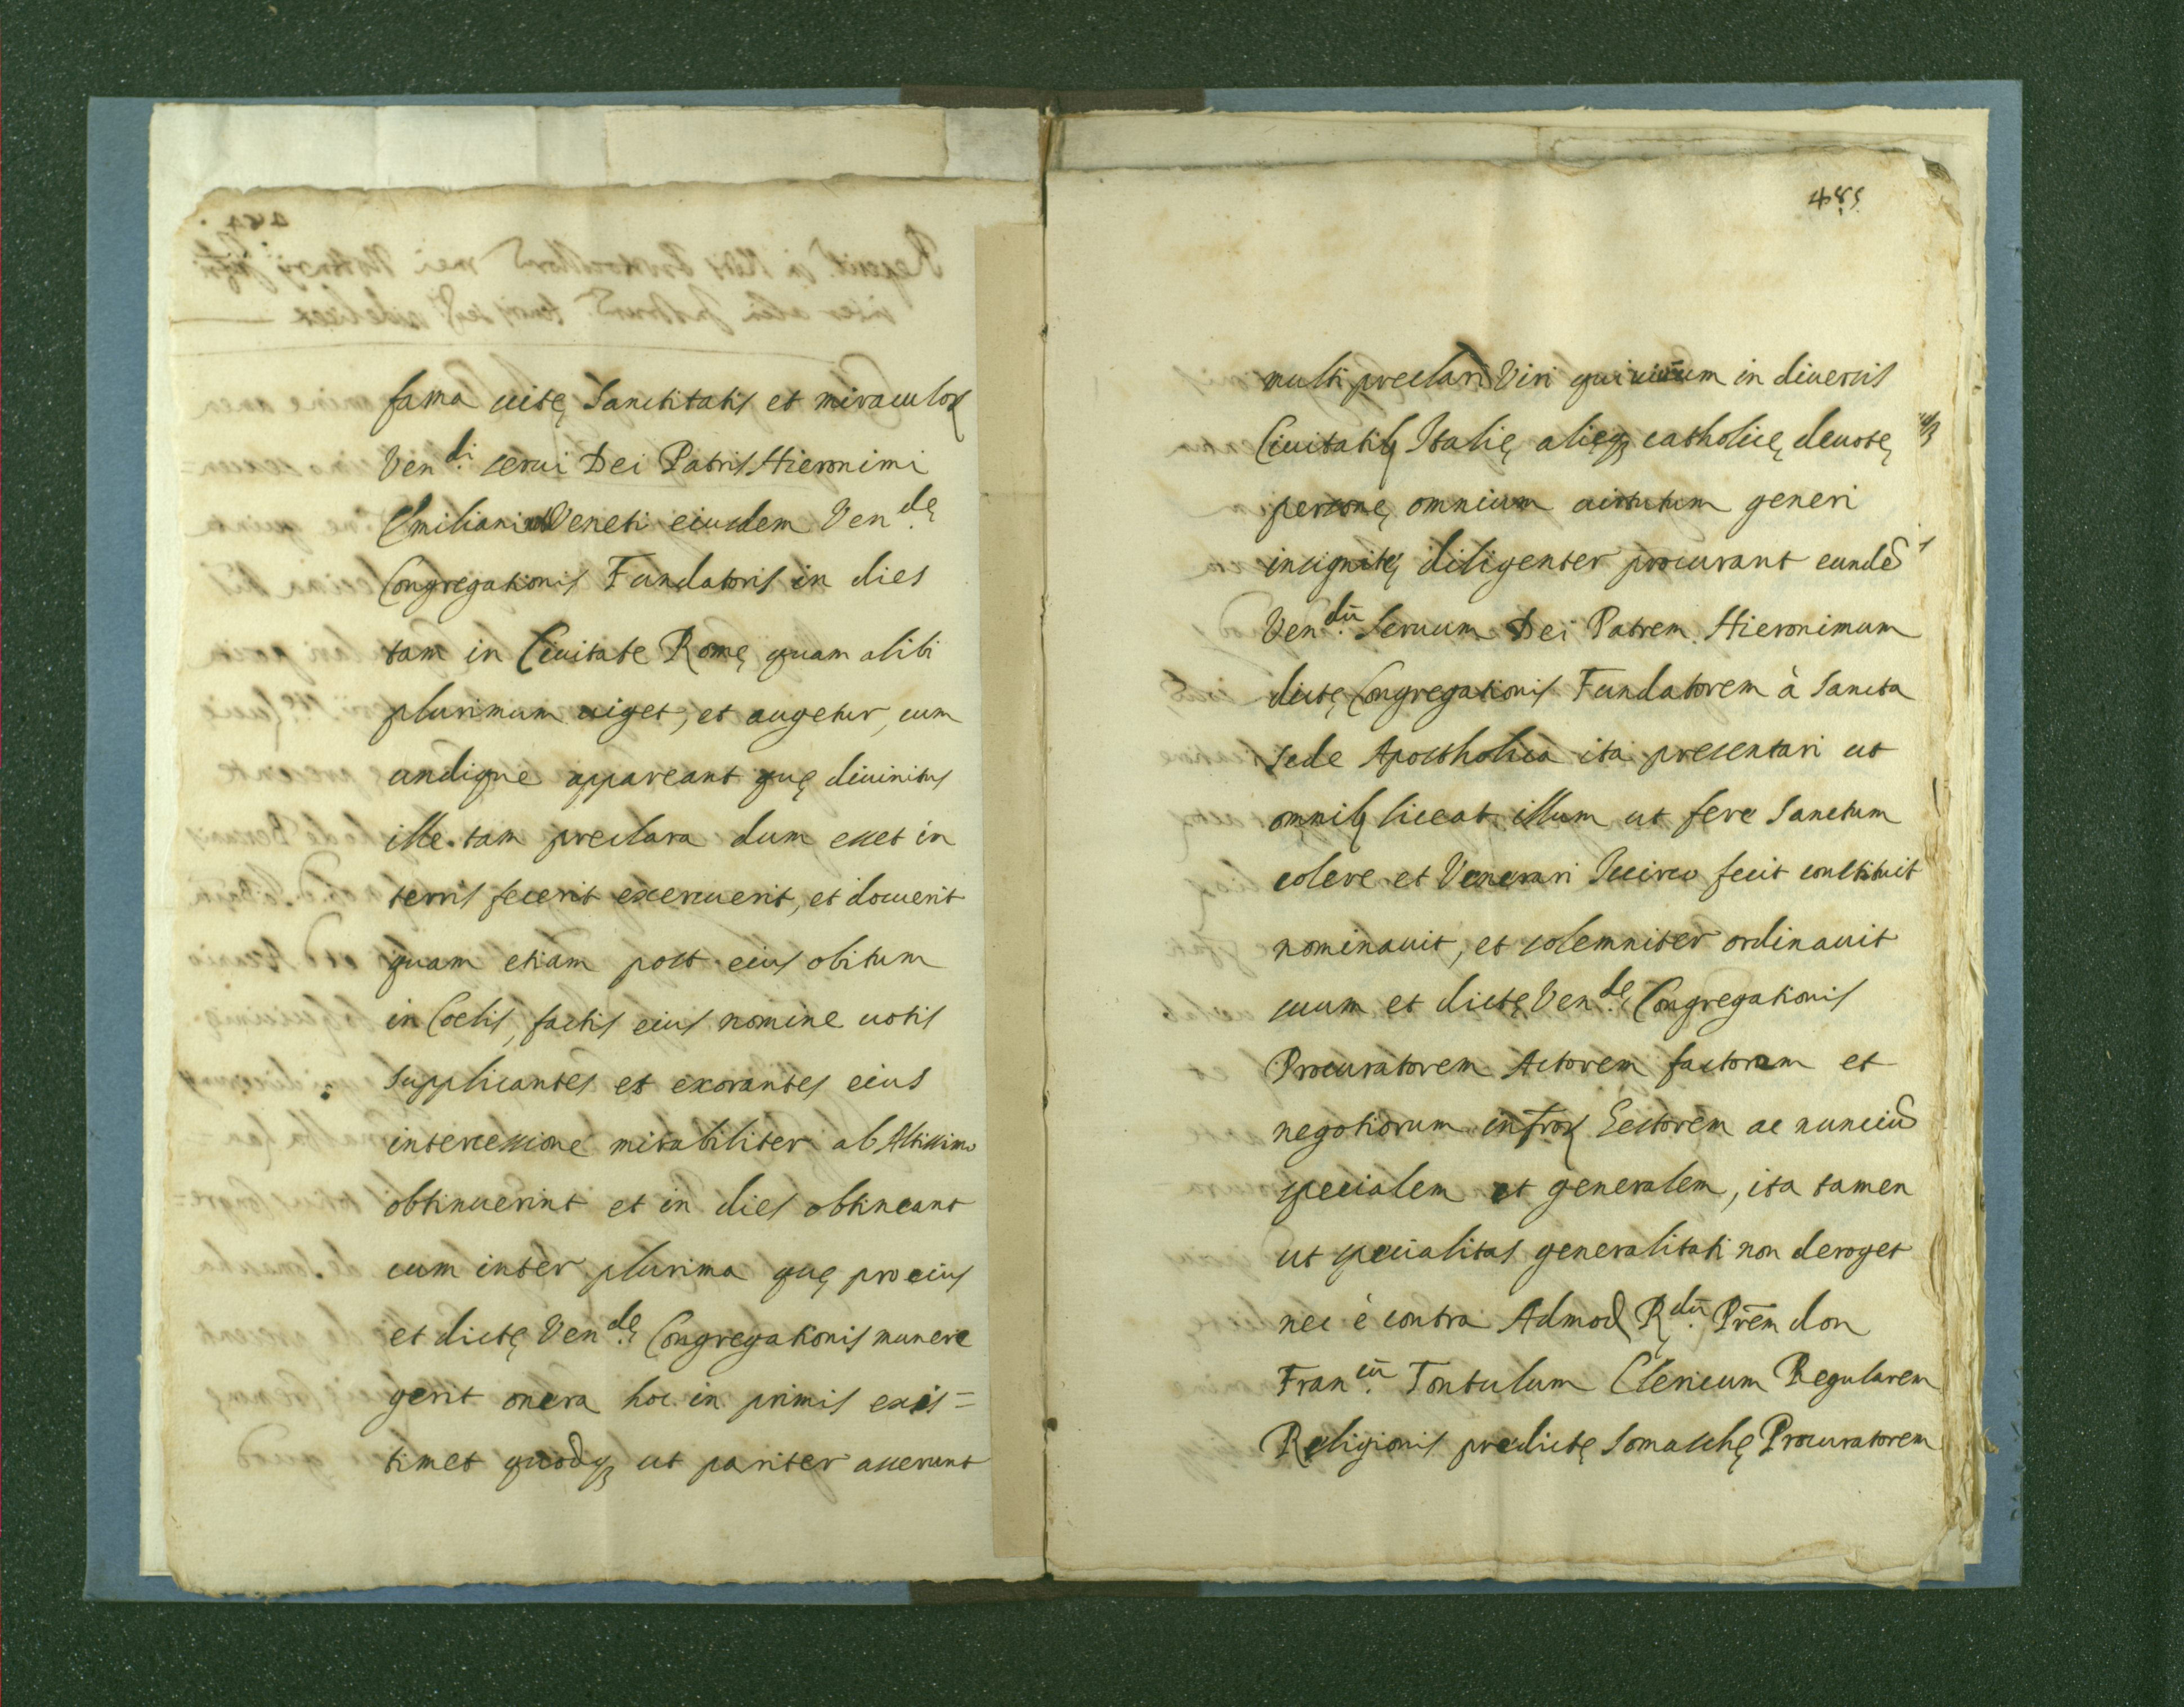 fama uitę Sanctitatis et miraculoꝝ
Ven.di serui Dei Patris Hieronimi
Emiliani Veneti eiusdem Ven.dę
Congregationis Fundatoris in dies
tam in Ciuitate Romę quam alibi
plurimum uiget, et augetur, cum
undique appareant quę diuinitus
ille tam preclara dum esset in
terris fecerit exercuerit, et docuerit
quam etiam post eius obitum
in Coelis, factis eius nomine uotis
supplicantes et exorantes eius
intercessione mirabiliter ab Altissimo
obtinuerint et in dies obtineant
cum inter plurima quę pro eius
et dictę Ven.dę Congregationis munere
gerit onera hoc in primis exis=
timet quodq; ut pariter asserunt
485
multi preclari Viri qui in diuersis
Ciuitatib; Italię alięq; catholicę deuotę
personę omnium uirtutum generi
insignitę diligenter procurant eundē
Ven.dū Seruum Dei Patrem Hieronimum
dictę Congregationis Fundatorem à Sancta
Sede Apostholica ita presentari ut
omnib; liceat illum ut fere Sanctum
colere et Venerari Iccirco fecit constituit
nominauit, et solemniter ordinauit
suum et dictę Ven.dę Congregationis
Procuratorem Actorem factorem et
negotiorum infroꝝ Gestorem ac nunciū
specialem et generalem, ita tamen
ut specialitas generalitati non deroget
nec è contra Admod. R.dū Prēm don
Fran.cū Tontulum Clericum Regularem
Religionis predictę Somaschę Procuratorem